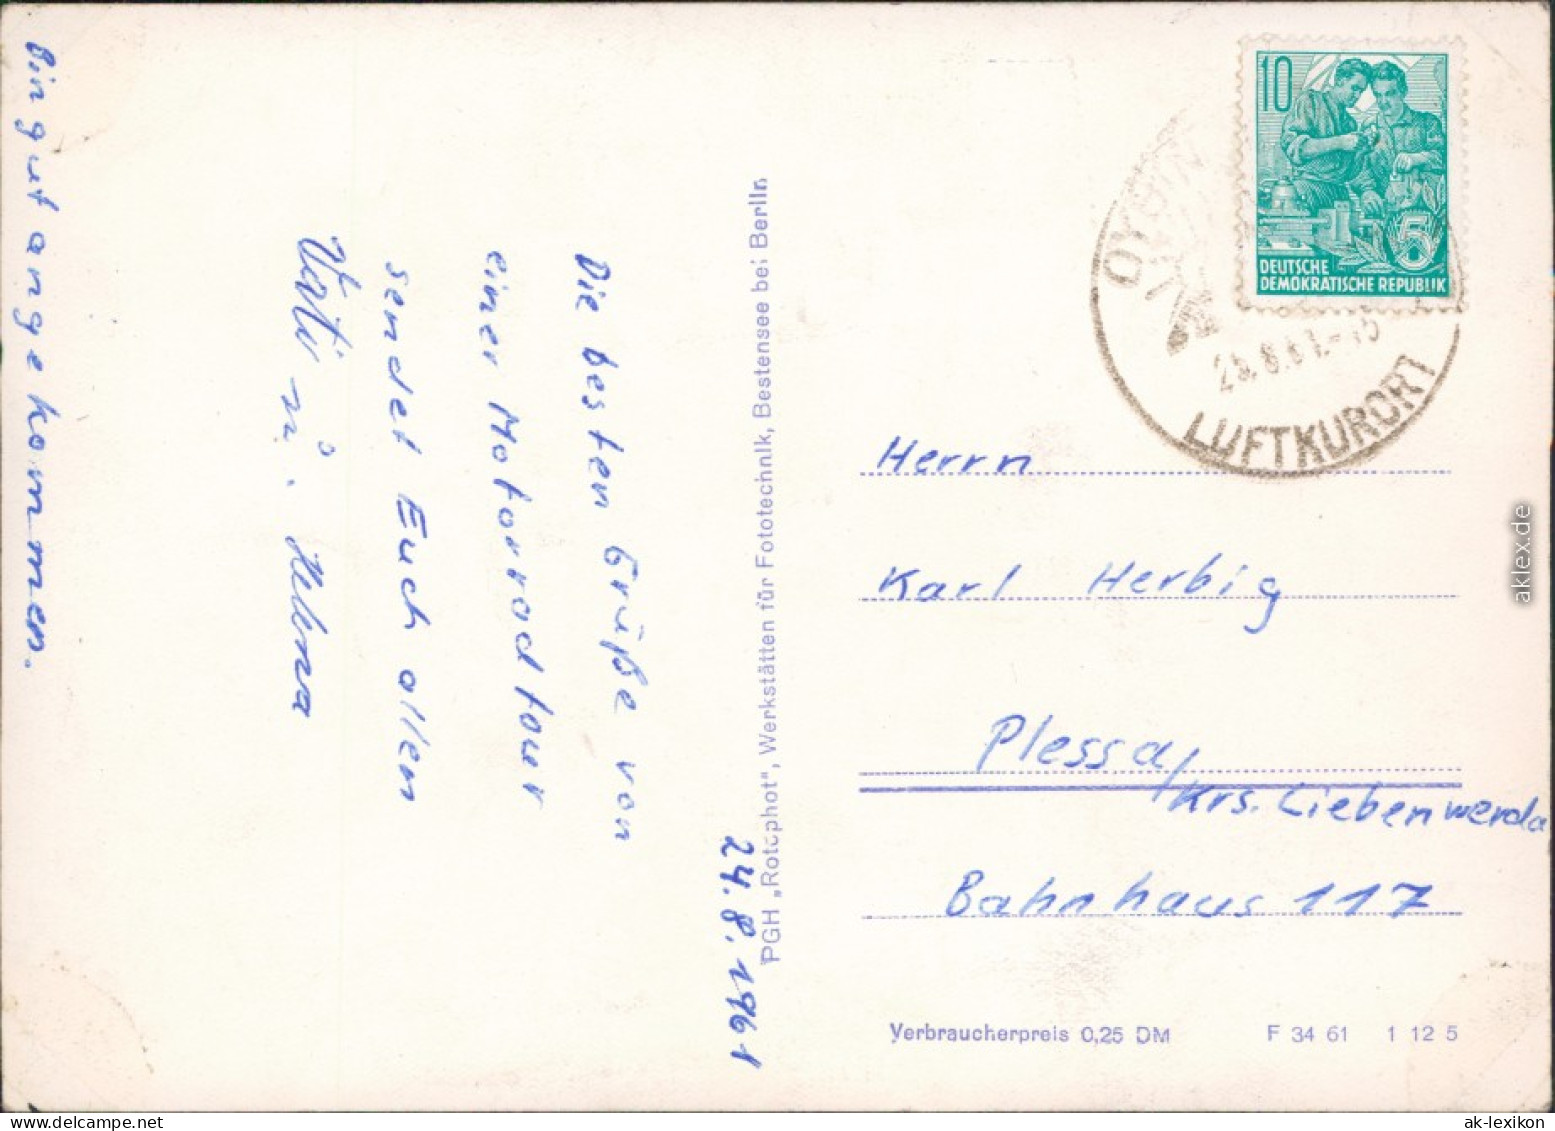 24.8.1961
Die besten Grüße von
einer Motorradtour
sendet Euch allen
Vati u. Helma
Bin gut angekommen.
PGH „Rotophot“, Werkstätten für Fototechnik, Bestensee bei Berlin
10
DEUTSCHE
DEMOKRATISCHE REPUBLIK
5
OYBIN
LUFTKURORT
Herrn
Karl Herbig
Plessa/
Krs. Liebenwerda
Bahnhaus 117
Verbraucherpreis 0,25 DM
F 34 61 1 12 5
aklex.de
ak-lexikon